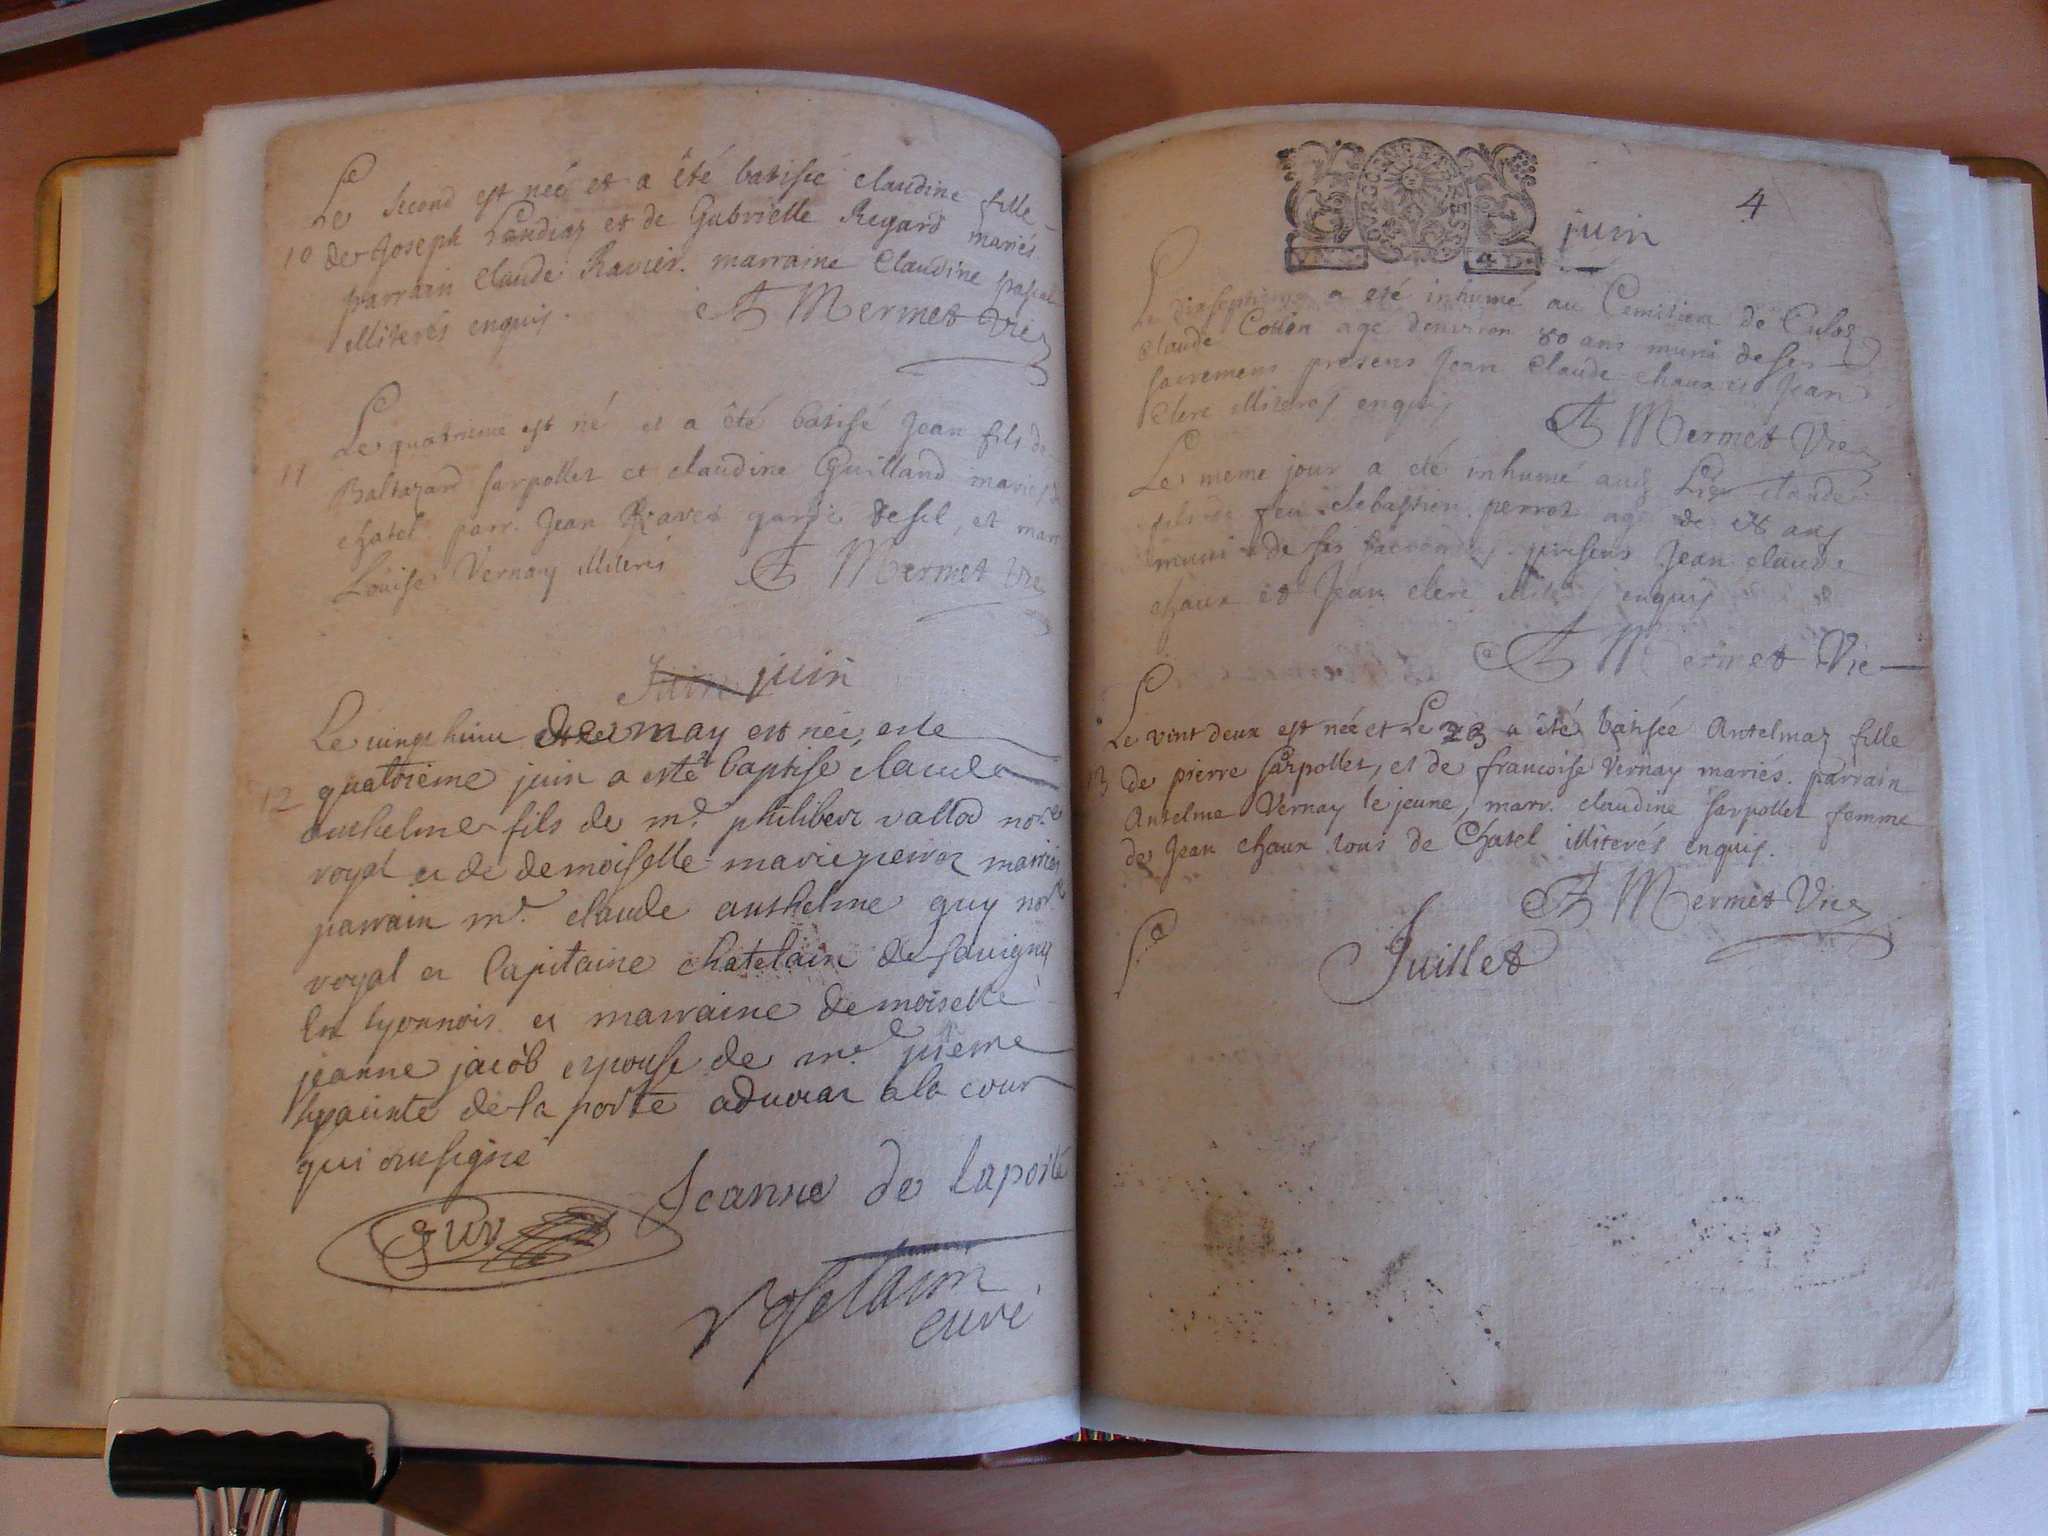 Le second est née et a êté batisée claudine fille
10 de Joseph et de Gabrielle Regard mariés
parrain claude Ravier. marraine Claudine pascal
illiterés enquis. Mermet Vic
Le quatrieme est né et a êté batisé Jean fils de
11 Baltazard sarpollet et claudine Guilland mariés
chatel parr. Jean Ravet et marr
Louise Vernay illiterés Mermet Vic
Juin juin
Le vingt huit de may est née, et le
quatrieme juin a esté baptise claude
12 anthelme fils de mr. philibert vallod nore
royal et de demoiselle marie perror mariés
parrain mr. claude anthelme guy nore
royal et Capitaine chatelain de savigny
En lyonnois et marraine demoiselle
jeanne jacob espouse de mre. pierre
hyacinte de la porte advocat a la cour
qui ont signé
guy Jeanne de laporte
curé
UN S. 4 D.
4
juin
Le dixseptieme a eté inhumé au Cemitiere de Culoz
claude Collon agé denviron 80 ans muni de ses
sacremens presens Jean Claude chaux et Jean
clerc illiterés enquis
Mermet Vic
Le meme jour a eté inhumé audt Lieu claude
fils de feu sebastien perrot agé de ans
muni de ses sacremens presens Jean claude
chaux et Jean clerc illiterés enquis
Mermet Vic
Le vint deux est née et Le 23 a êté batisée Antelmaz fille
13 de pierre sarpollet, et de francoise Vernay mariés. parrain
Antelme Vernay le jeune, marr. claudine sarpollet femme
de Jean chaux tous de Chatel illiterés enquis.
Mermet Vic
Juillet